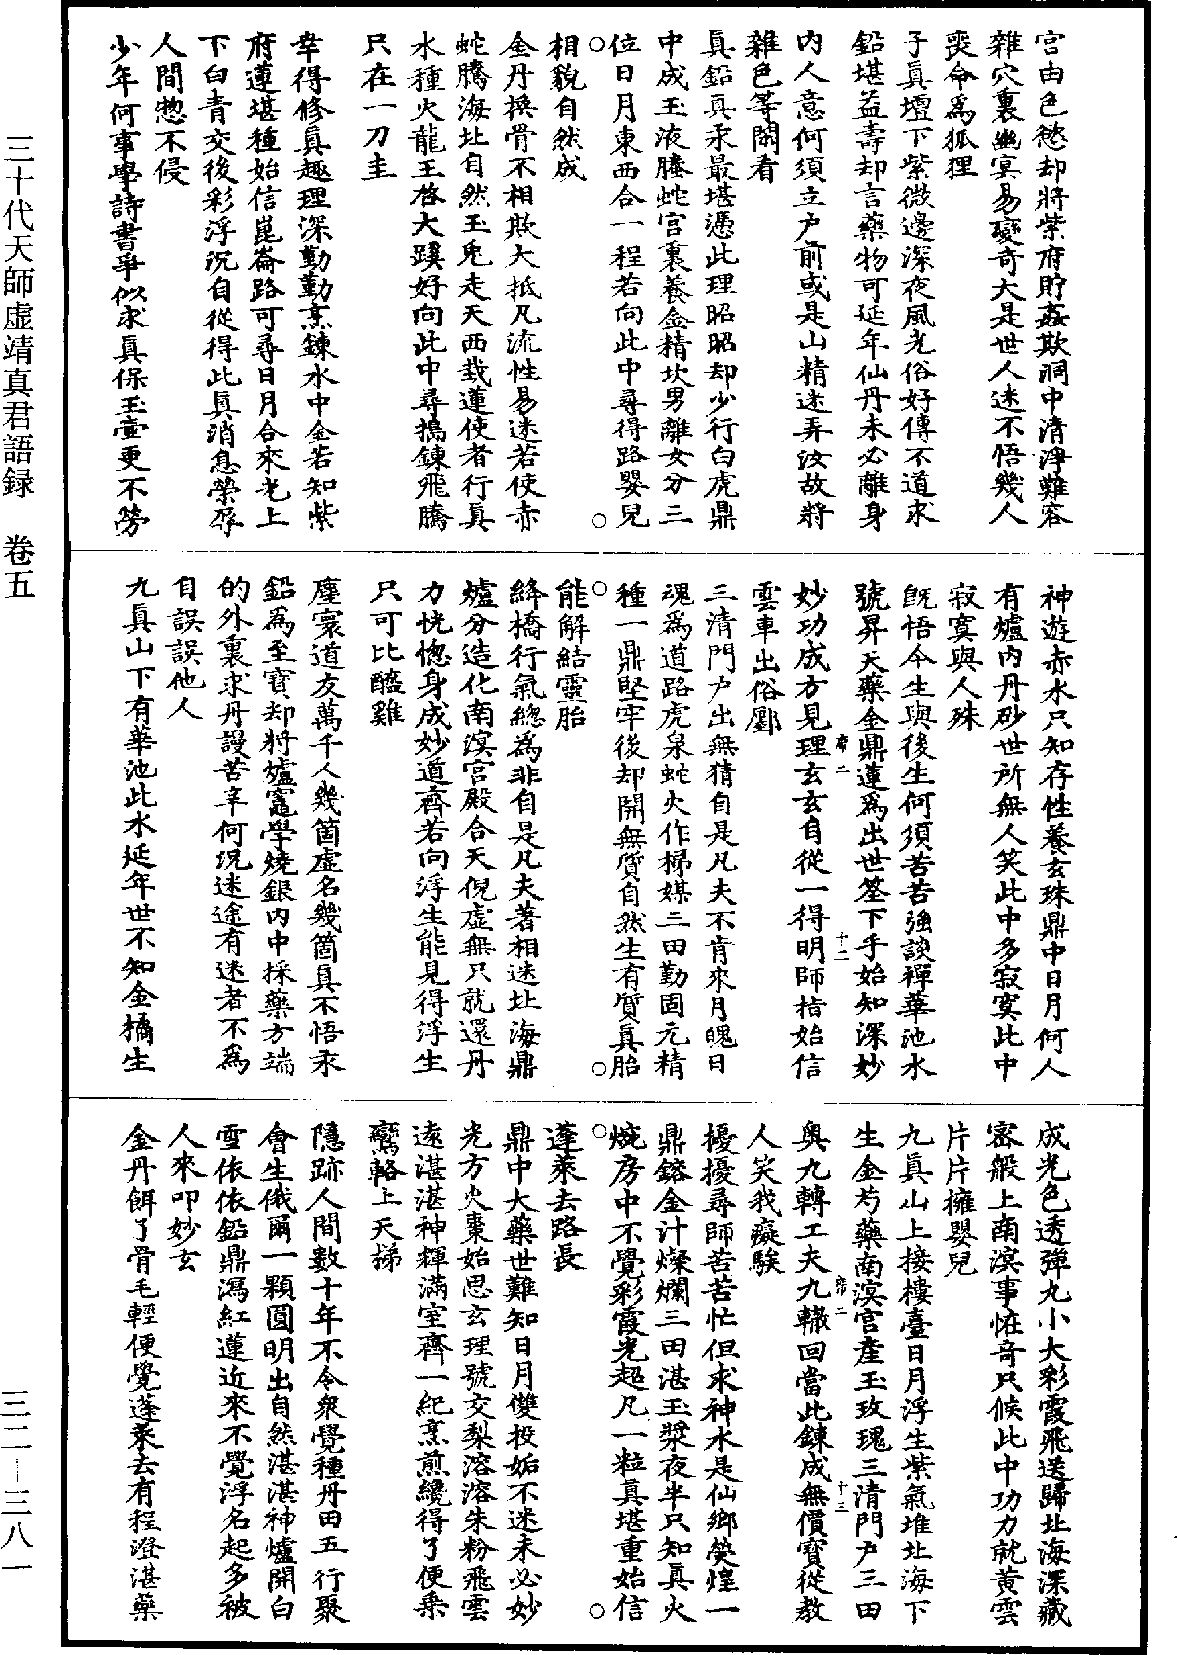 宮由色慾却將紫府貯姦欺洞中清淨難容
雜穴裏幽冥易變奇大是世人迷不悟幾人
喪命爲狐狸
子真壇下紫微邊深夜風光俗好傳不道求
鉛堪益壽却言藥物可延年仙丹未必離身
內人意何須立戶前或是山精迷弄汝故將
雜色等閑看
真鉛真汞最堪憑此理昭昭却少行白虎鼎
中成玉液騰蛇宮裏養金精坎男離女分三
位日月東西合一程若向此中尋得路嬰兒
相貌自然成
金丹換骨不相欺大抵凡流性易迷若使赤
蛇騰海北自然玉兎走天西栽蓮使者行真
水種火龍王啓大蹊好向此中尋搗鍊飛騰
只在一刀圭
幸得修真趣理深勤勤烹鍊水中金若知紫
府蓮堪種始信崑崙路可尋日月合來光上
下白青交後彩浮沉自從得此真消息榮辱
人間惣不侵
少年何事學詩書爭似求真保玉壷更不勞
神遊赤水只知存性養玄珠鼎中日月何人
有爐內丹砂世所無人笑此中多寂寞此中
寂寞與人殊
旣悟今生與後生何須苦苦強談禪華池水
號昇天藥金鼎蓮爲出世筌下手始知深妙
妙功成方見理玄玄自從一得明師指始信
雲車出俗鄽
三清門戶出無猜自是凡夫不肯來月魄日
魂爲道路虎泉蛇火作梯媒三田勤固元精
種一鼎堅牢後却開無質自然生有質真胎
能解結靈胎
絳橋行氣總爲非自是凡夫著相迷北海鼎
爐分造化南溟宮殿合天倪虛無只就還丹
力恍惚身成妙道齊若向浮生能見得浮生
只可比醯雞
塵寰道友萬千人幾箇虛名幾箇真不悟汞
鉛爲至寶却將爐竈學燒銀內中採藥方端
的外裏求丹謾苦辛何況迷途有迷者不爲
自誤誤他人
九真山下有華池此水延年世不知金橘生
成光色透彈丸小大彩霞飛送歸北海深藏
密般上南溟事恠奇只候此中功力就黃雲
片片擁嬰兒
九真山上接樓臺日月浮生紫氣堆北海下
生金芍藥南溟宮產玉玫瑰三清門戶三田
奧九轉工夫九轍回當此鍊成無價寶從教
人笑我癡騃
擾擾尋師苦苦忙但求神水是仙鄉熒煌一
鼎鎔金汁燦爛三田湛玉漿夜半只知真火
燒房中不覺彩霞光超凡一粒真堪重始信
蓬萊去路長
鼎中大藥世難知日月雙投姤不迷未必妙
光方火棗始思玄理號交梨溶溶朱粉飛雲
遠湛湛神輝滿室齊一紀烹煎纔得了便乘
鸞輅上天梯
隱跡人間數十年不令衆覺種丹田五行聚
會生俄爾一顆圓明出自然湛湛神爐開白
雪依依鉛鼎瀉紅蓮近來不覺浮名起多被
人來叩妙玄
金丹餌了骨毛輕便覺蓬萊去有程澄湛藥
三十代天師虛靖真君語録　卷五
三二—三八一